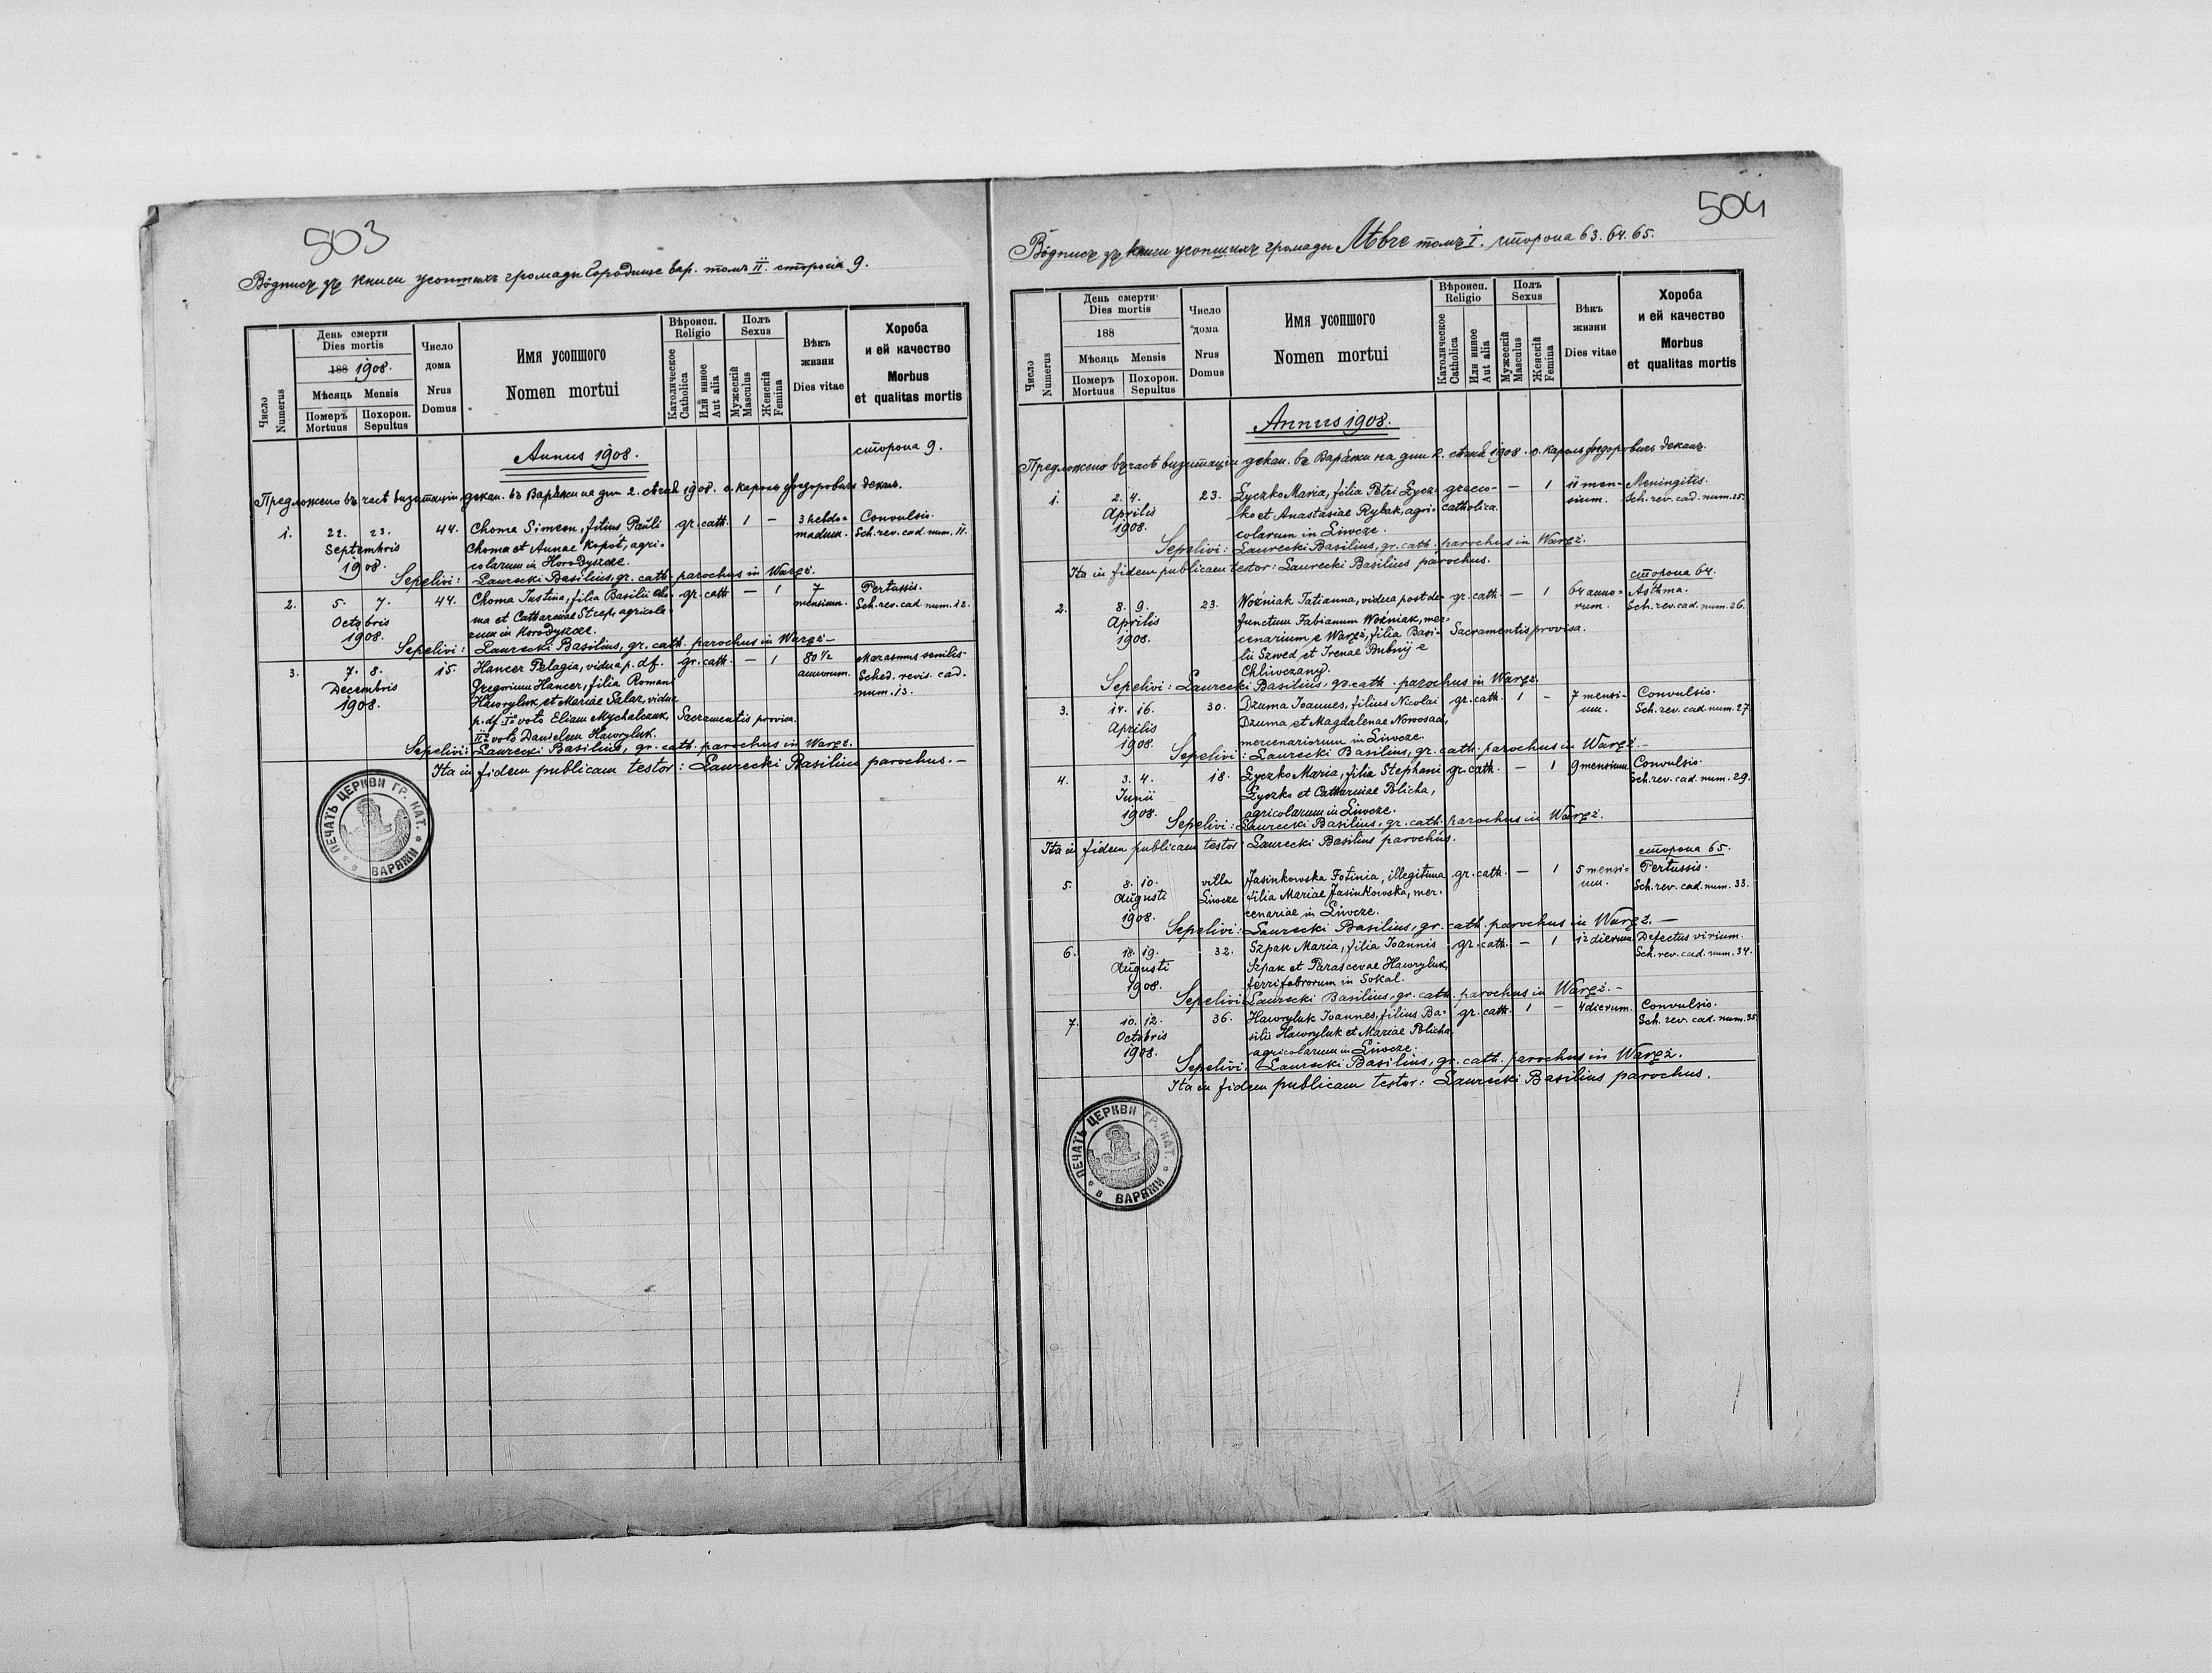 503
Вôдписъ зъ книги усопшихъ громады Городище вар. томъ II. сторона 9.
Число
Numerus
День смерти
Dies mortis
188 1908.
Мѣсяць Mensis
Померъ
Mortuus
Похорон.
Sepultus
Число
дома
Nrus
Domus
Имя усопшого
Nomen mortui
Вѣроисп.
Religio
Католическое
Catholica
Или инное
Aut alia
Полъ
Sexus
Мужескій
Masculus
Женскій
Femina
Вѣкъ
жизни
Dies vitae
Хороба
и ей качество
Morbus
et qualitas mortis
Annus 1908.
сторона 9.
Предложено въ часѣ визитаціи декан. въ Варяжи на дни 2. сѣчня 1908. о. Кароль Ѳедоровичъ деканъ.
1. 22. 23. 44. Choma Simeon, filius Pauli gr. cath. 1 — 3 hebdo- Convulsio.
Septembris Choma et Annae Kopot, agri- madum. Sch. rev. cad. num. 11.
1908. colarum in Horodyszcze.
Sepelivi: Laurecki Basilius, gr. cath. parochus in Waręż.
2. 5. 7. 44. Choma Justina, filia Basilii Cho- gr. cath — 1 7 Pertussis.
Octobris ma et Catharinae Streps agricola- mensium. Sch. rev. cad. num. 12.
1908. rum in Horodyszcze.
Sepelivi: Laurecki Basilius, gr. cath. parochus in Waręż —
3. 7. 8. 15. Hancer Pelagia, vidua p. df. gr. cath. — 1 80 1/2 Marasmus senilis
Decembris Gregorium Hancer, filia Romani annorum. Sched. revis. cad.
1908. Hawryluk et Mariae Salaz, vidua num. 13.
p. df. I° voto Eliam Mychalczuk, Sacramentis provisa.
II° voto Danielem Hawryluk.
Sepelivi: Laurecki Basilius, gr. cath. parochus in Waręż.
Ita in fidem publicam testor: Laurecki Basilius parochus. —
ПЕЧАТЬ ЦЕРКВИ ГР. КАТ. * в ВАРЯЖИ *
504
Вôдписъ зъ книги усопшихъ громады Лѣвче томъ I. сторона 63. 64. 65.
Число
Numerus
День смерти
Dies mortis
188
Мѣсяць Mensis
Померъ
Mortuus
Похорон.
Sepultus
Число
дома
Nrus
Domus
Имя усопшого
Nomen mortui
Вѣроисп.
Religio
Католическое
Catholica
Или инное
Aut alia
Полъ
Sexus
Мужескій
Masculus
Женскій
Femina
Вѣкъ
жизни
Dies vitae
Хороба
и ей качество
Morbus
et qualitas mortis
Annus 1908.
Предложено въ часѣ визитаціи декан. въ Варяжи на дни 2. сѣчня 1908. о. Кароль Ѳедоровичъ деканъ.
1. 2. 4. 23. Łyczko Maria, filia Petri Łycz- graeco- — 1 11 men- Meningitis.
Aprilis ko et Anastasiae Rybak, agri- catholica. sium. Sch. rev. cad. num. 25.
1908. colarum in Liwcze.
Sepelivi: Laurecki Basilius, gr. cath. parochus in Waręż.
Ita in fidem publicam testor: Laurecki Basilius parochus.
сторона 64.
2. 8. 9. 23. Woźniak Tatianna, vidua post de- gr. cath. — 1 64 anno- Asthma.
Aprilis functum Fabianum Woźniak, mer- rum. Sch. rev. cad. num. 26.
1908. cenarium e Waręż, filia Basi- Sacramentis provisa.
lii Szwed et Irenae Bubnij e
Chliwczany.
Sepelivi: Laurecki Basilius, gr. cath. parochus in Waręż.
3. 14. 16. 30. Dzuma Joannes, filius Nicolai gr. cath. 1 — 7 mensi- Convulsio.
Aprilis Dzuma et Magdalenae Nowosad, um. Sch. rev. cad. num. 27.
1908. mercenariorum in Liwcze.
Sepelivi: Laurecki Basilius, gr. cath. parochus in Waręż. —
4. 3. 4. 18. Łyczko Maria, filia Stephani gr. cath. — 1 9 mensium Convulsio.
Junii Łyczko et Catharinae Policha, Sch. rev. cad. num. 29.
1908. agricolarum in Liwcze.
Sepelivi: Laurecki Basilius, gr. cath. parochus in Waręż.
Ita in fidem publicam testor: Laurecki Basilius parochus.
сторона 65.
5. 8. 10. villa Jasinkowska Fotinia, illegitima gr. cath. — 1 5 mensi- Pertussis.
Augusti Liwcze filia Mariae Jasinkowska, mer- um. Sch. rev. cad. num. 33.
1908. cenariae in Liwcze.
Sepelivi: Laurecki Basilius, gr. cath. parochus in Waręż. —
6. 18. 19. 32. Szpak Maria, filia Joannis gr. cath. — 1 12 dierum Defectus virium.
Augusti Szpak et Parascevae Hawryluk, Sch. rev. cad. num. 34.
1908. ferrifabrorum in Sokal.
Sepelivi: Laurecki Basilius, gr. cath. parochus in Waręż. —
7. 10. 12. 36. Hawryluk Joannes, filius Ba- gr. cath. 1 — 4 dierum. Convulsio.
Octobris silii Hawryluk et Mariae Policha, Sch. rev. cad. num. 35.
1908. agricolarum in Liwcze.
Sepelivi: Laurecki Basilius, gr. cath. parochus in Waręż.
Ita in fidem publicam testor: Laurecki Basilius parochus.
ПЕЧАТЬ ЦЕРКВИ ГР. КАТ. * в ВАРЯЖИ *